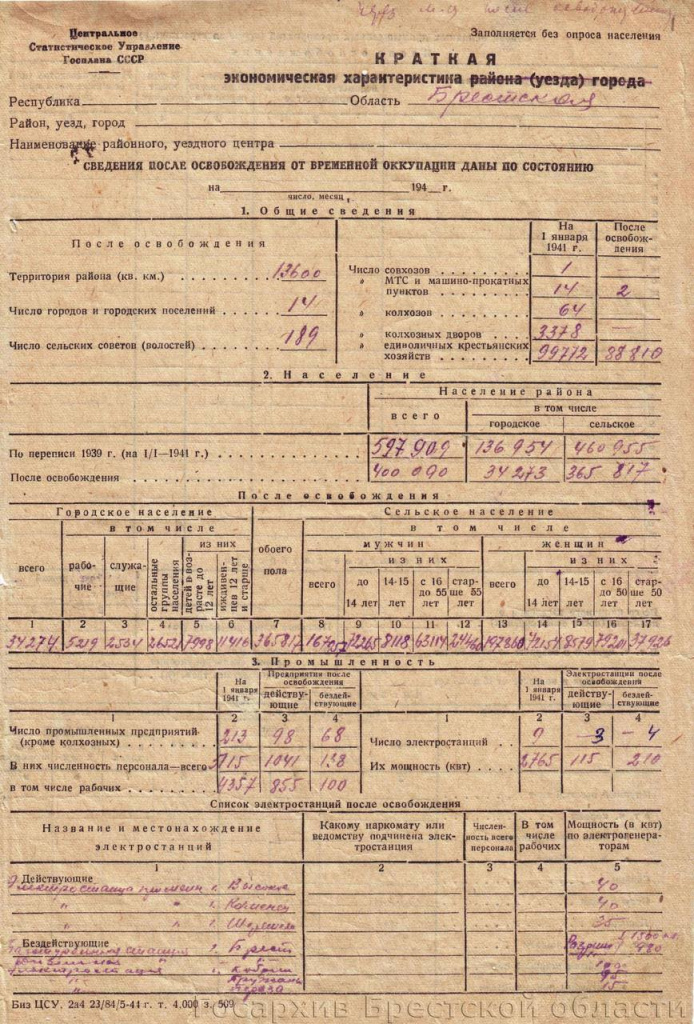 после
Центральное
Статистическое Управление
Госплана СССР
Заполняется без опроса населения
КРАТКАЯ
экономическая характеристика района (уезда) города
Республика Область Брестская
Район, уезд, город
Наименование районного, уездного центра
СВЕДЕНИЯ ПОСЛЕ ОСВОБОЖДЕНИЯ ОТ ВРЕМЕННОЙ ОККУПАЦИИ ДАНЫ ПО СОСТОЯНИЮ
на 194 г.
число, месяц
1. Общие сведения
После освобождения
На 1 января 1941 г.
После освобождения
Территория района (кв. км.) 13600
Число городов и городских поселений 14
Число сельских советов (волостей) 189
Число совхозов 1
" МТС и машино-прокатных пунктов 14 2
" колхозов 64
" колхозных дворов 3378 —
" единоличных крестьянских хозяйств 99772 88810
2. Население
Население района
всего
в том числе
городское сельское
По переписи 1939 г. (на 1/I—1941 г.) 597 909 136 954 460 955
После освобождения 400 090 34 273 365 817
После освобождения
Городское население Сельское население
всего
в том числе
рабочие
служащие
остальные группы населения
из них
детей в возрасте до 12 лет
иждивенцев 12 лет и старше
обоего пола
в том числе
мужчин женщин
всего
из них
до 14 лет
14-15 лет
с 16 до 55 лет
старше 55 лет
всего
из них
до 14 лет
14-15 лет
с 16 до 50 лет
старше 50 лет
1 2 3 4 5 6 7 8 9 10 11 12 13 14 15 16 17
34274 5219 2534 7998 11416 365817 8118 63114
3. Промышленность
На 1 января 1941 г.
Предприятия после освобождения
действующие
бездействующие
На 1 января 1941 г.
Электростанции после освобождения
действующие
бездействующие
1 2 3 4 1 2 3 4
Число промышленных предприятий (кроме колхозных) 213 98 68
Число электростанций 9 3 4
В них численность персонала—всего 1041 138
Их мощность (квт) 2765 115 210
в том числе рабочих 4357 855 100
Список электростанций после освобождения
Название и местонахождение электростанций
Какому наркомату или ведомству подчинена электростанция
Численность всего персонала
В том числе рабочих
Мощность (в квт) по электрогенераторам
1 2 3 4 5
Действующие
г. Высокое 40
" " г. Каменец 40
" " г. 35
Бездействующие
г. Брест
Электростанция г. Кобрин
" Пружаны 95
" Береза 15
Биз ЦСУ. 2д4 23/84/5-44 г. т. 4.000 з. 509
Госархив Брестской области